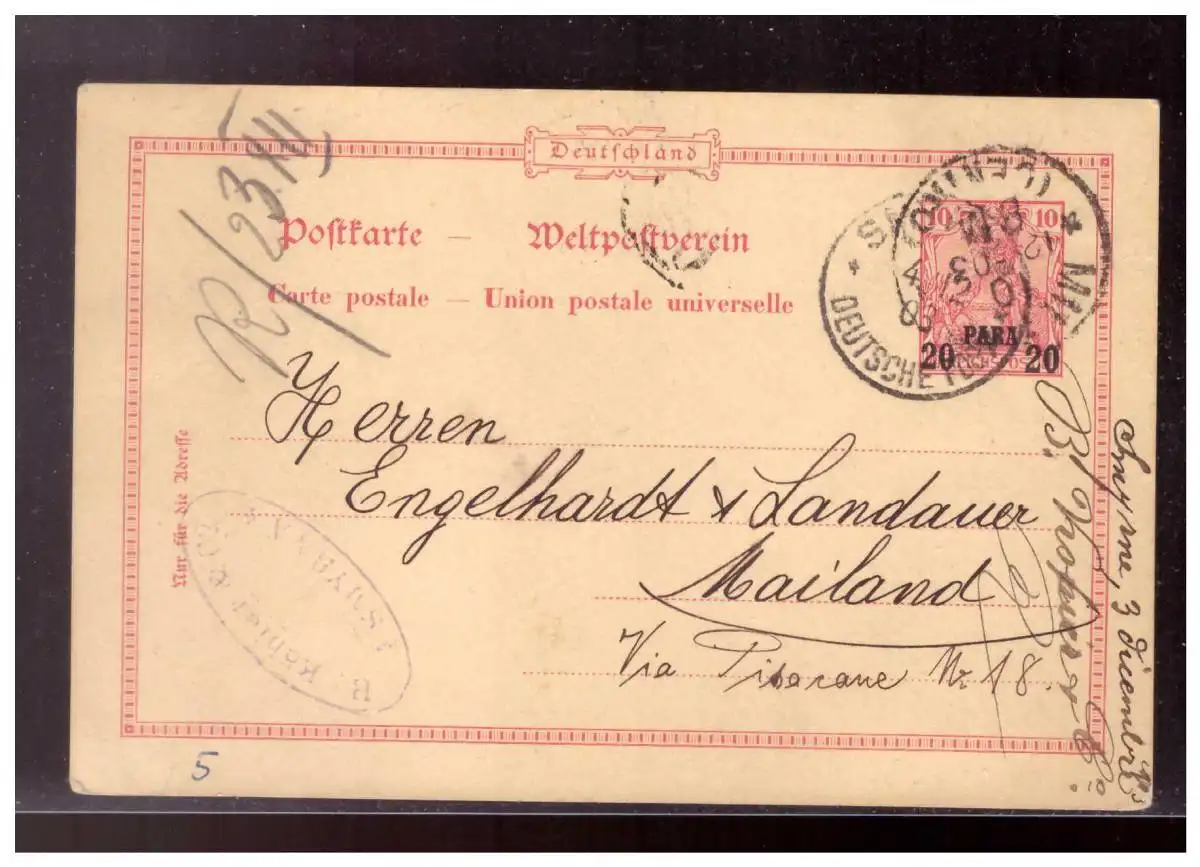 Deutschland
R/23.XII
Postkarte — Weltpostverein
Carte postale — Union postale universelle
10 10
20 PARA 20
DEUTSCHE
Herren
Engelhardt & Landauer
Mailand
Via Pisacane Nr. 18.
Nur für die Adresse
SMYRNA
Smyrne, 3 dicembre
5